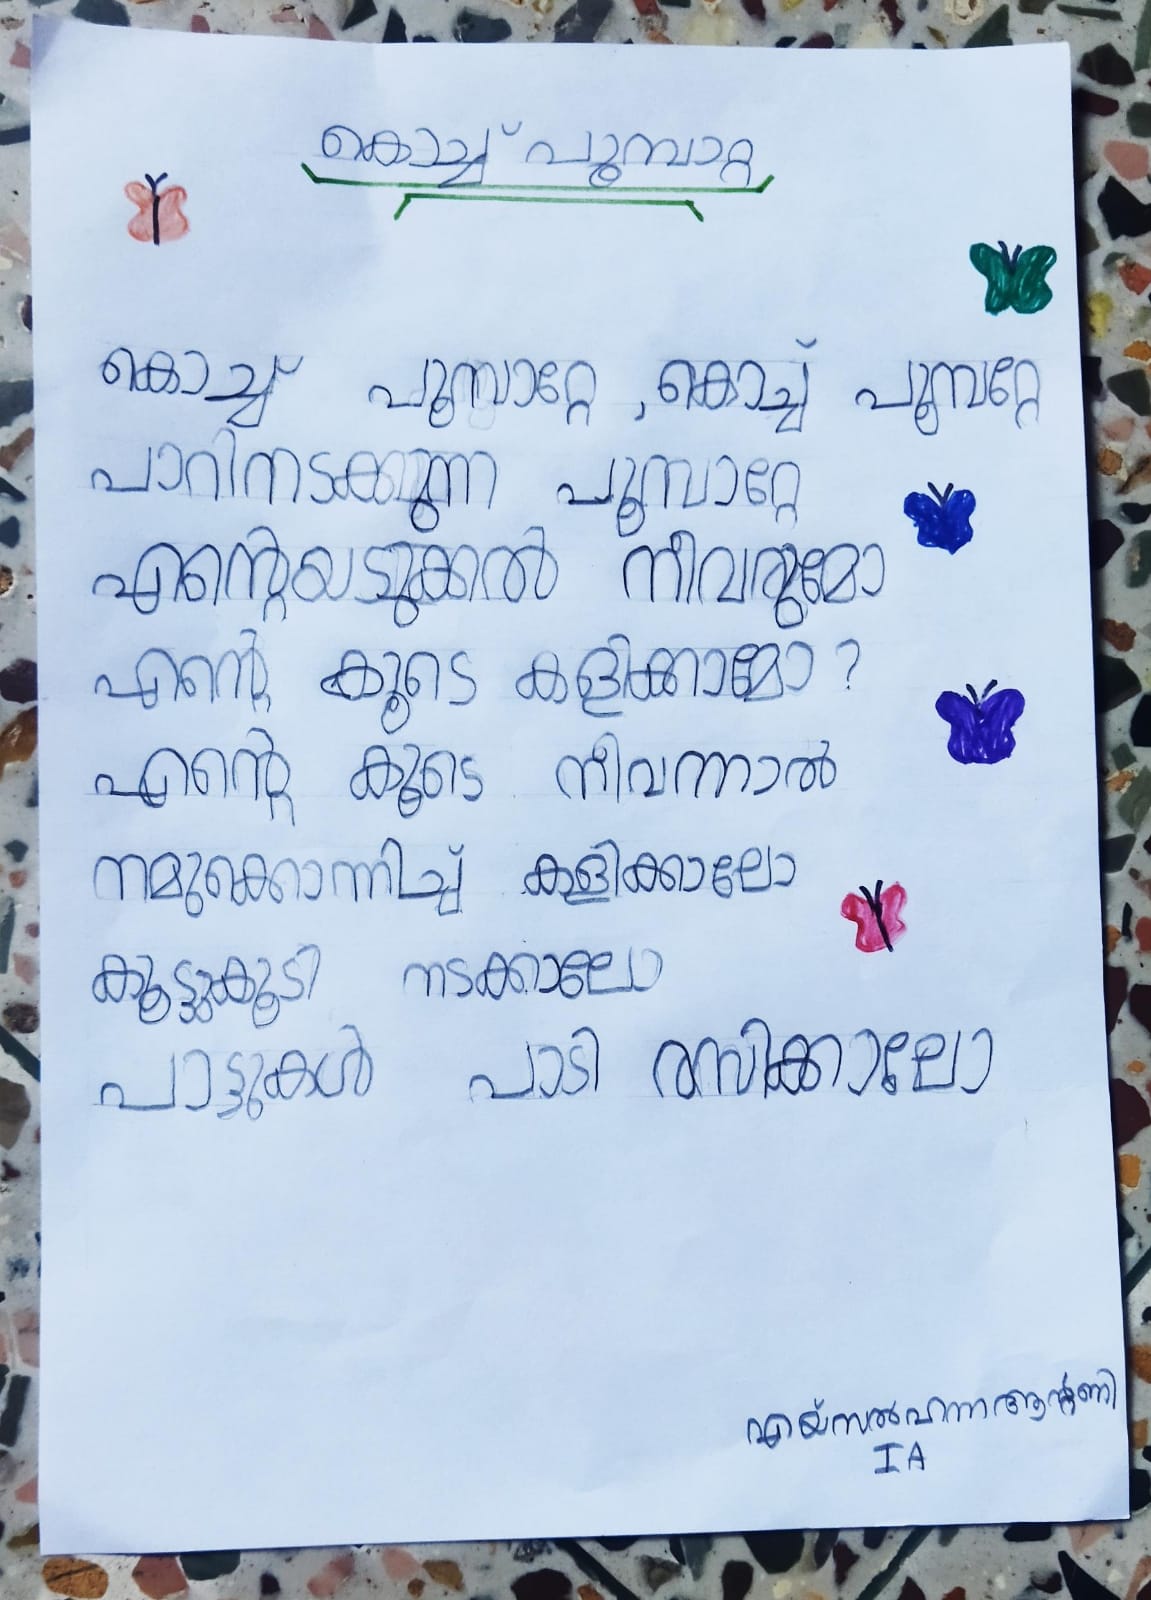 കൊച്ച് പൂമ്പാറ്റ
കൊച്ച് പൂമ്പാറ്റേ , കൊച്ച് പൂമ്പറ്റേ
പാറിനടക്കുന്ന പൂമ്പാറ്റേ
എന്റെയടുക്കൽ നീവരുമോ
എന്റെ കൂടെ കളിക്കാമോ ?
എന്റെ കൂടെ നീവന്നാൽ
നമുക്കൊന്നിച്ച് കളിക്കാലോ
കൂട്ടുകൂടി നടക്കാലോ
പാട്ടുകൾ പാടി രസിക്കാലോ
എയ്സൽ ഹന്ന ആന്റണി
I A